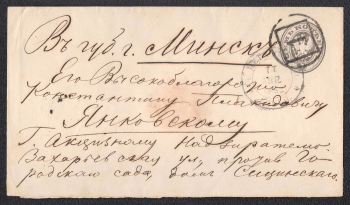 Въ губ. г. Минскъ
Его Высокоблагородію
Константину
Янковскому
Г. Акцизному Надзирателю.
Захарьевская ул, противъ Го-
родского сада, домъ